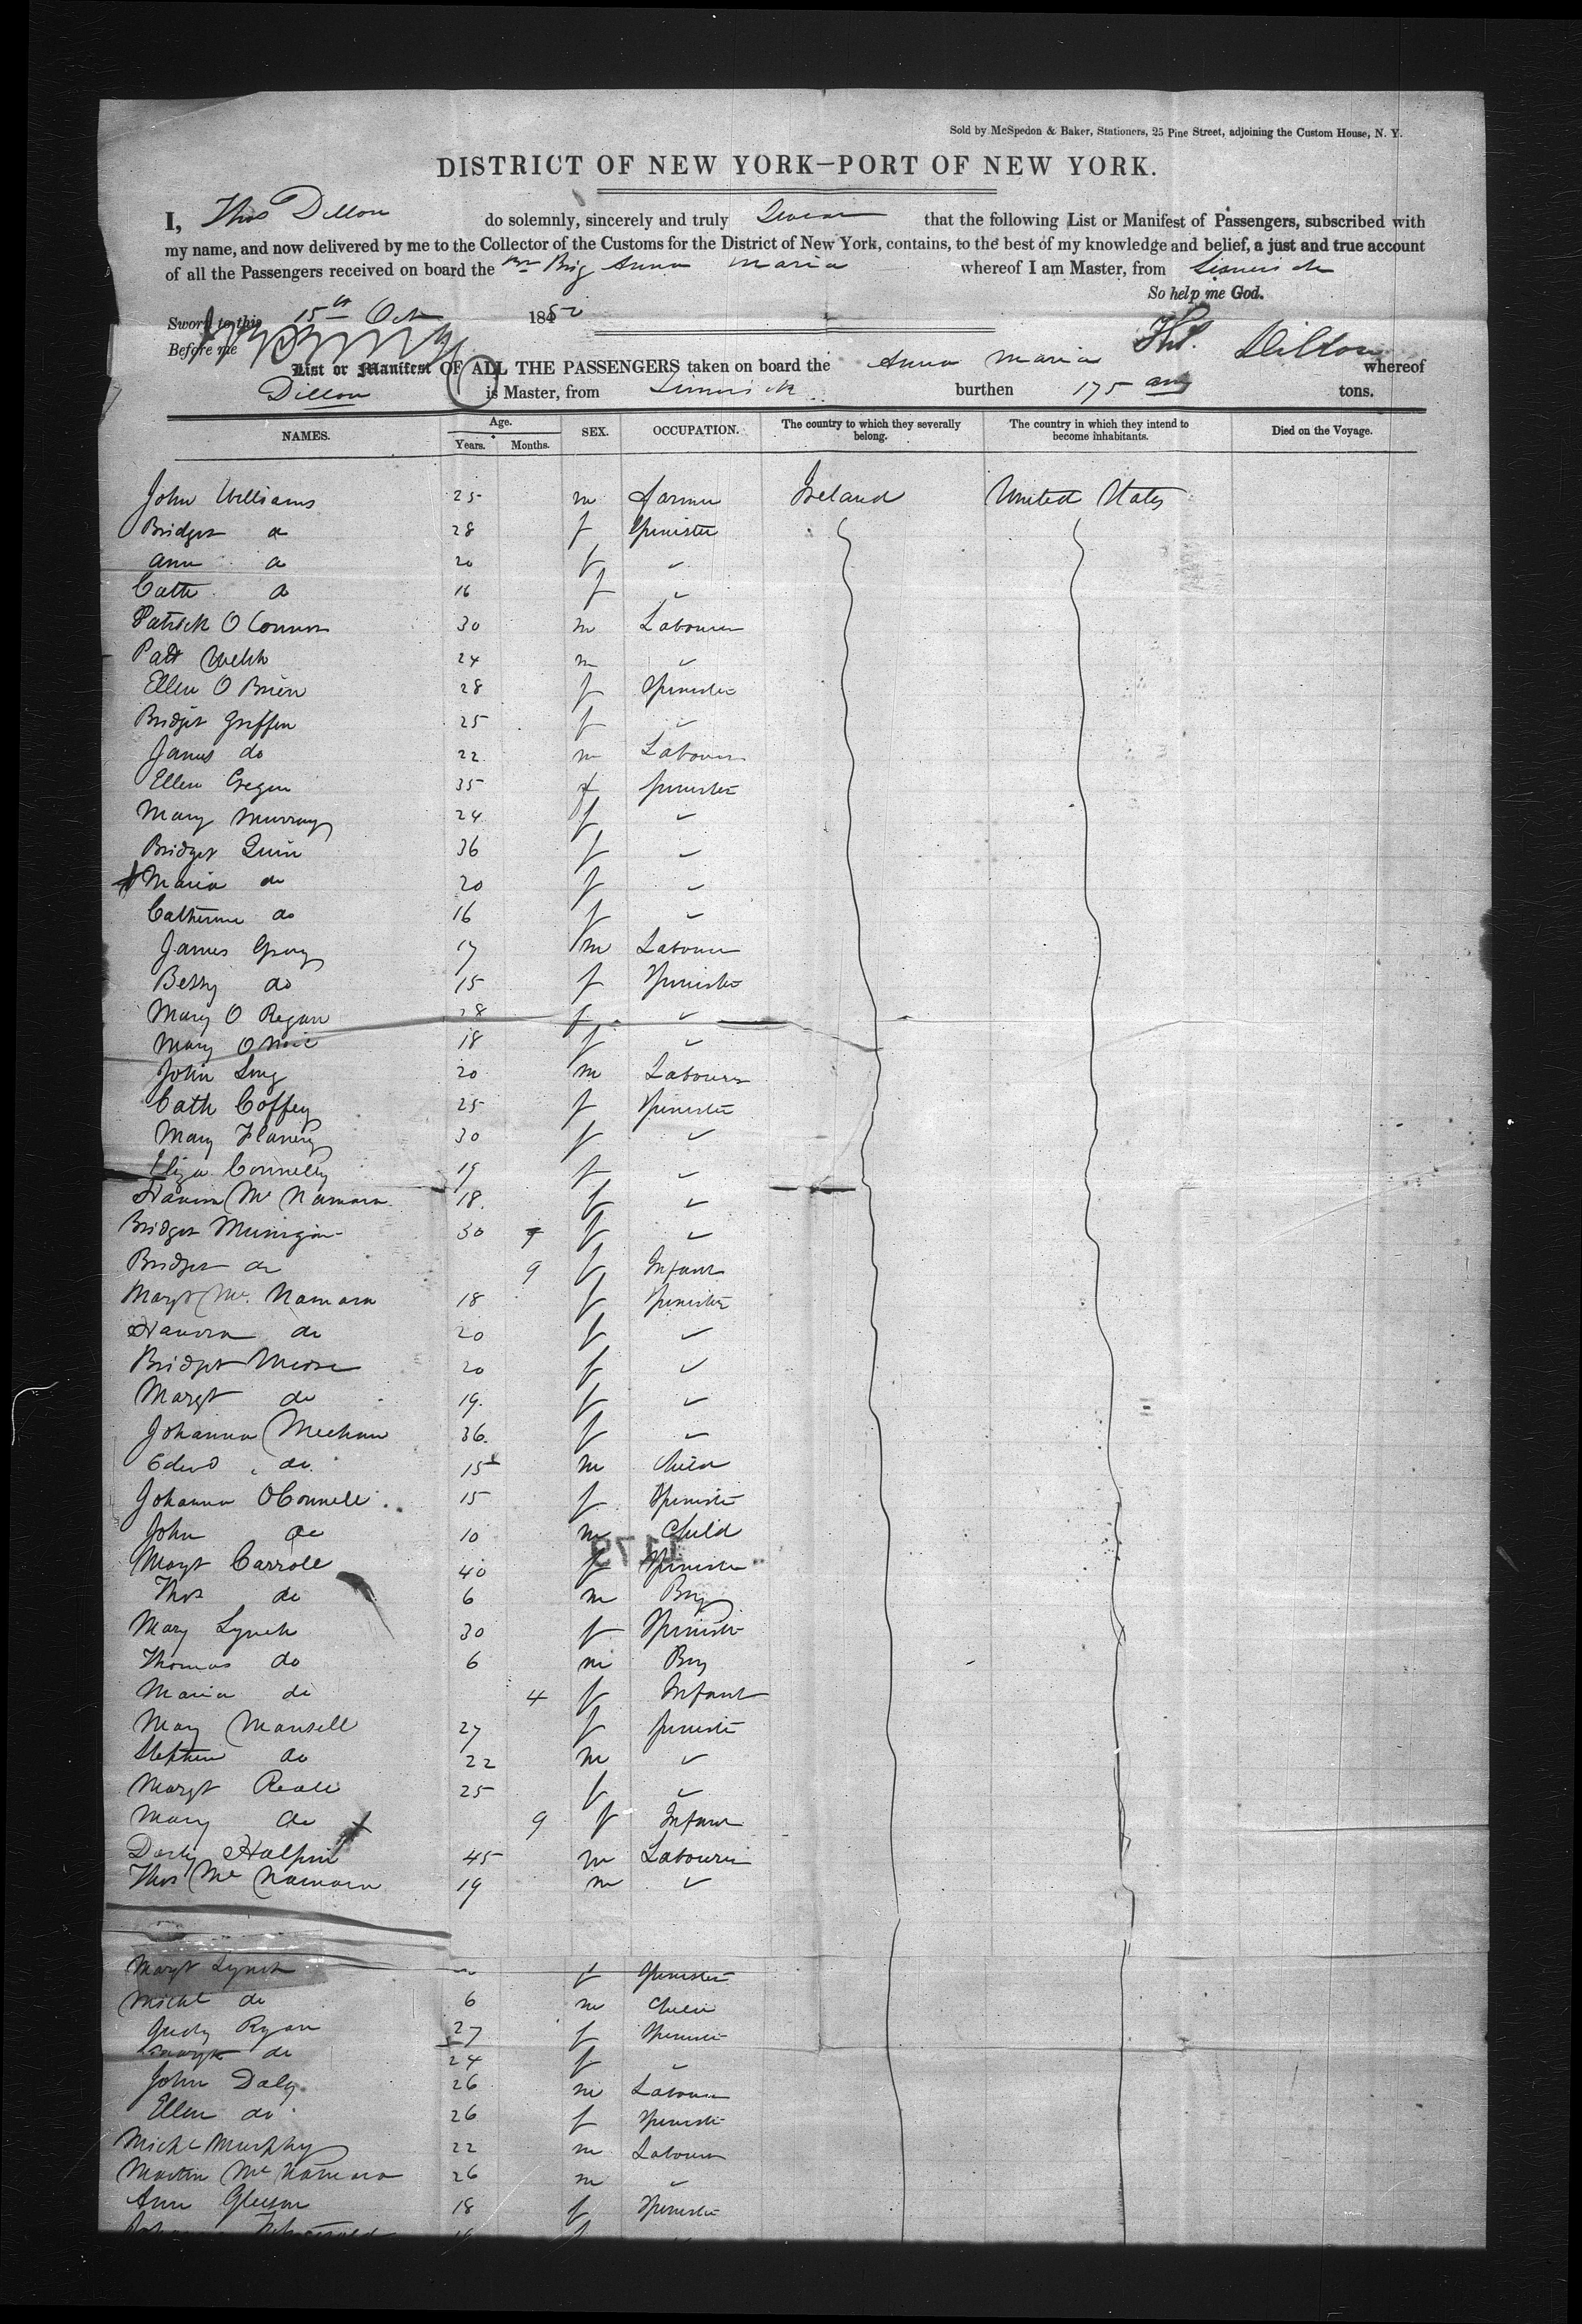 Sold by McSpedon & Baker, Stationers, 25 Pine Street, adjoining the Custom House, N. Y.
DISTRICT OF NEW YORK—PORT OF NEW YORK.
I, Thos Dillon do solemnly, sincerely and truly Swear that the following List or Manifest of Passengers, subscribed with
my name, and now delivered by me to the Collector of the Customs for the District of New York, contains, to the best of my knowledge and belief, a just and true account
of all the Passengers received on board the Br Brig Anna Maria whereof I am Master, from Limerick
So help me God.
Sworn to this 15th Oct 1850
Before me Thos. Dillon
List or Manifest OF ALL THE PASSENGERS taken on board the Anna Maria whereof
Dillon is Master, from Limerick burthen 175 tons.
NAMES. Age. Years. Months. SEX. OCCUPATION. The country to which they severally belong. The country in which they intend to become inhabitants. Died on the Voyage.
John Williams 25 m farmer Ireland United States
Bridget do 28 f Spinster
Ann do 20 f ✓
Cath do 16 f ✓
Patrick O Connor 30 m Labourer
Patt Welsh 24 m ✓
Ellen O Brien 28 f Spinster
Bridget Griffen 25 f ✓
James do 22 m Labourer
Ellen Cregan 35 f Spinster
Mary Murray 24 f ✓
Bridget Quin 36 f ✓
Maria do 20 f ✓
Catherine do 16 f ✓
James Gray 17 m Labourer
Betsy do 15 f Spinster
Mary O Regan 28 f ✓
Mary 18 f ✓
John Long 20 m Labourer
Cath Coffey 25 f Spinster
Mary Flanery 30 f ✓
Eliza Connelly 19 f ✓
Hanora Mc Namara 18 f ✓
Bridget 30 f ✓
Bridget do 9 f Infant
Margt Mc Namara 18 f Spinster
Hanora do 20 f ✓
Bridget 20 f ✓
Margt do 19 f ✓
Johanna Meehan 36 f ✓
Edwd do 15 m Child
Johanna OConnell 15 f Spinster
John do 10 m Child
Margt Carroll 40 f Spinster
Thos do 6 m Boy
Mary Lynch 30 f Spinster
Thomas do 6 m Boy
Maria do 4 f Infant
Mary Mansell 27 f Spinster
Stephen do 22 m ✓
Margt 25 f ✓
Mary do 9 f Infant
Darby Halpin 45 m Labourer
Thos Mc Namara 19 m ✓
Margt Lynch f Spinster
Michl do 6 m Child
Judy Ryan 27 f Spinster
Margt do 24 f ✓
John Daly 26 m Labourer
Ellen do 26 f Spinster
Michl Murphy 22 m Labourer
Martin Mc Namara 26 m ✓
Ann Gleeson 18 f Spinster